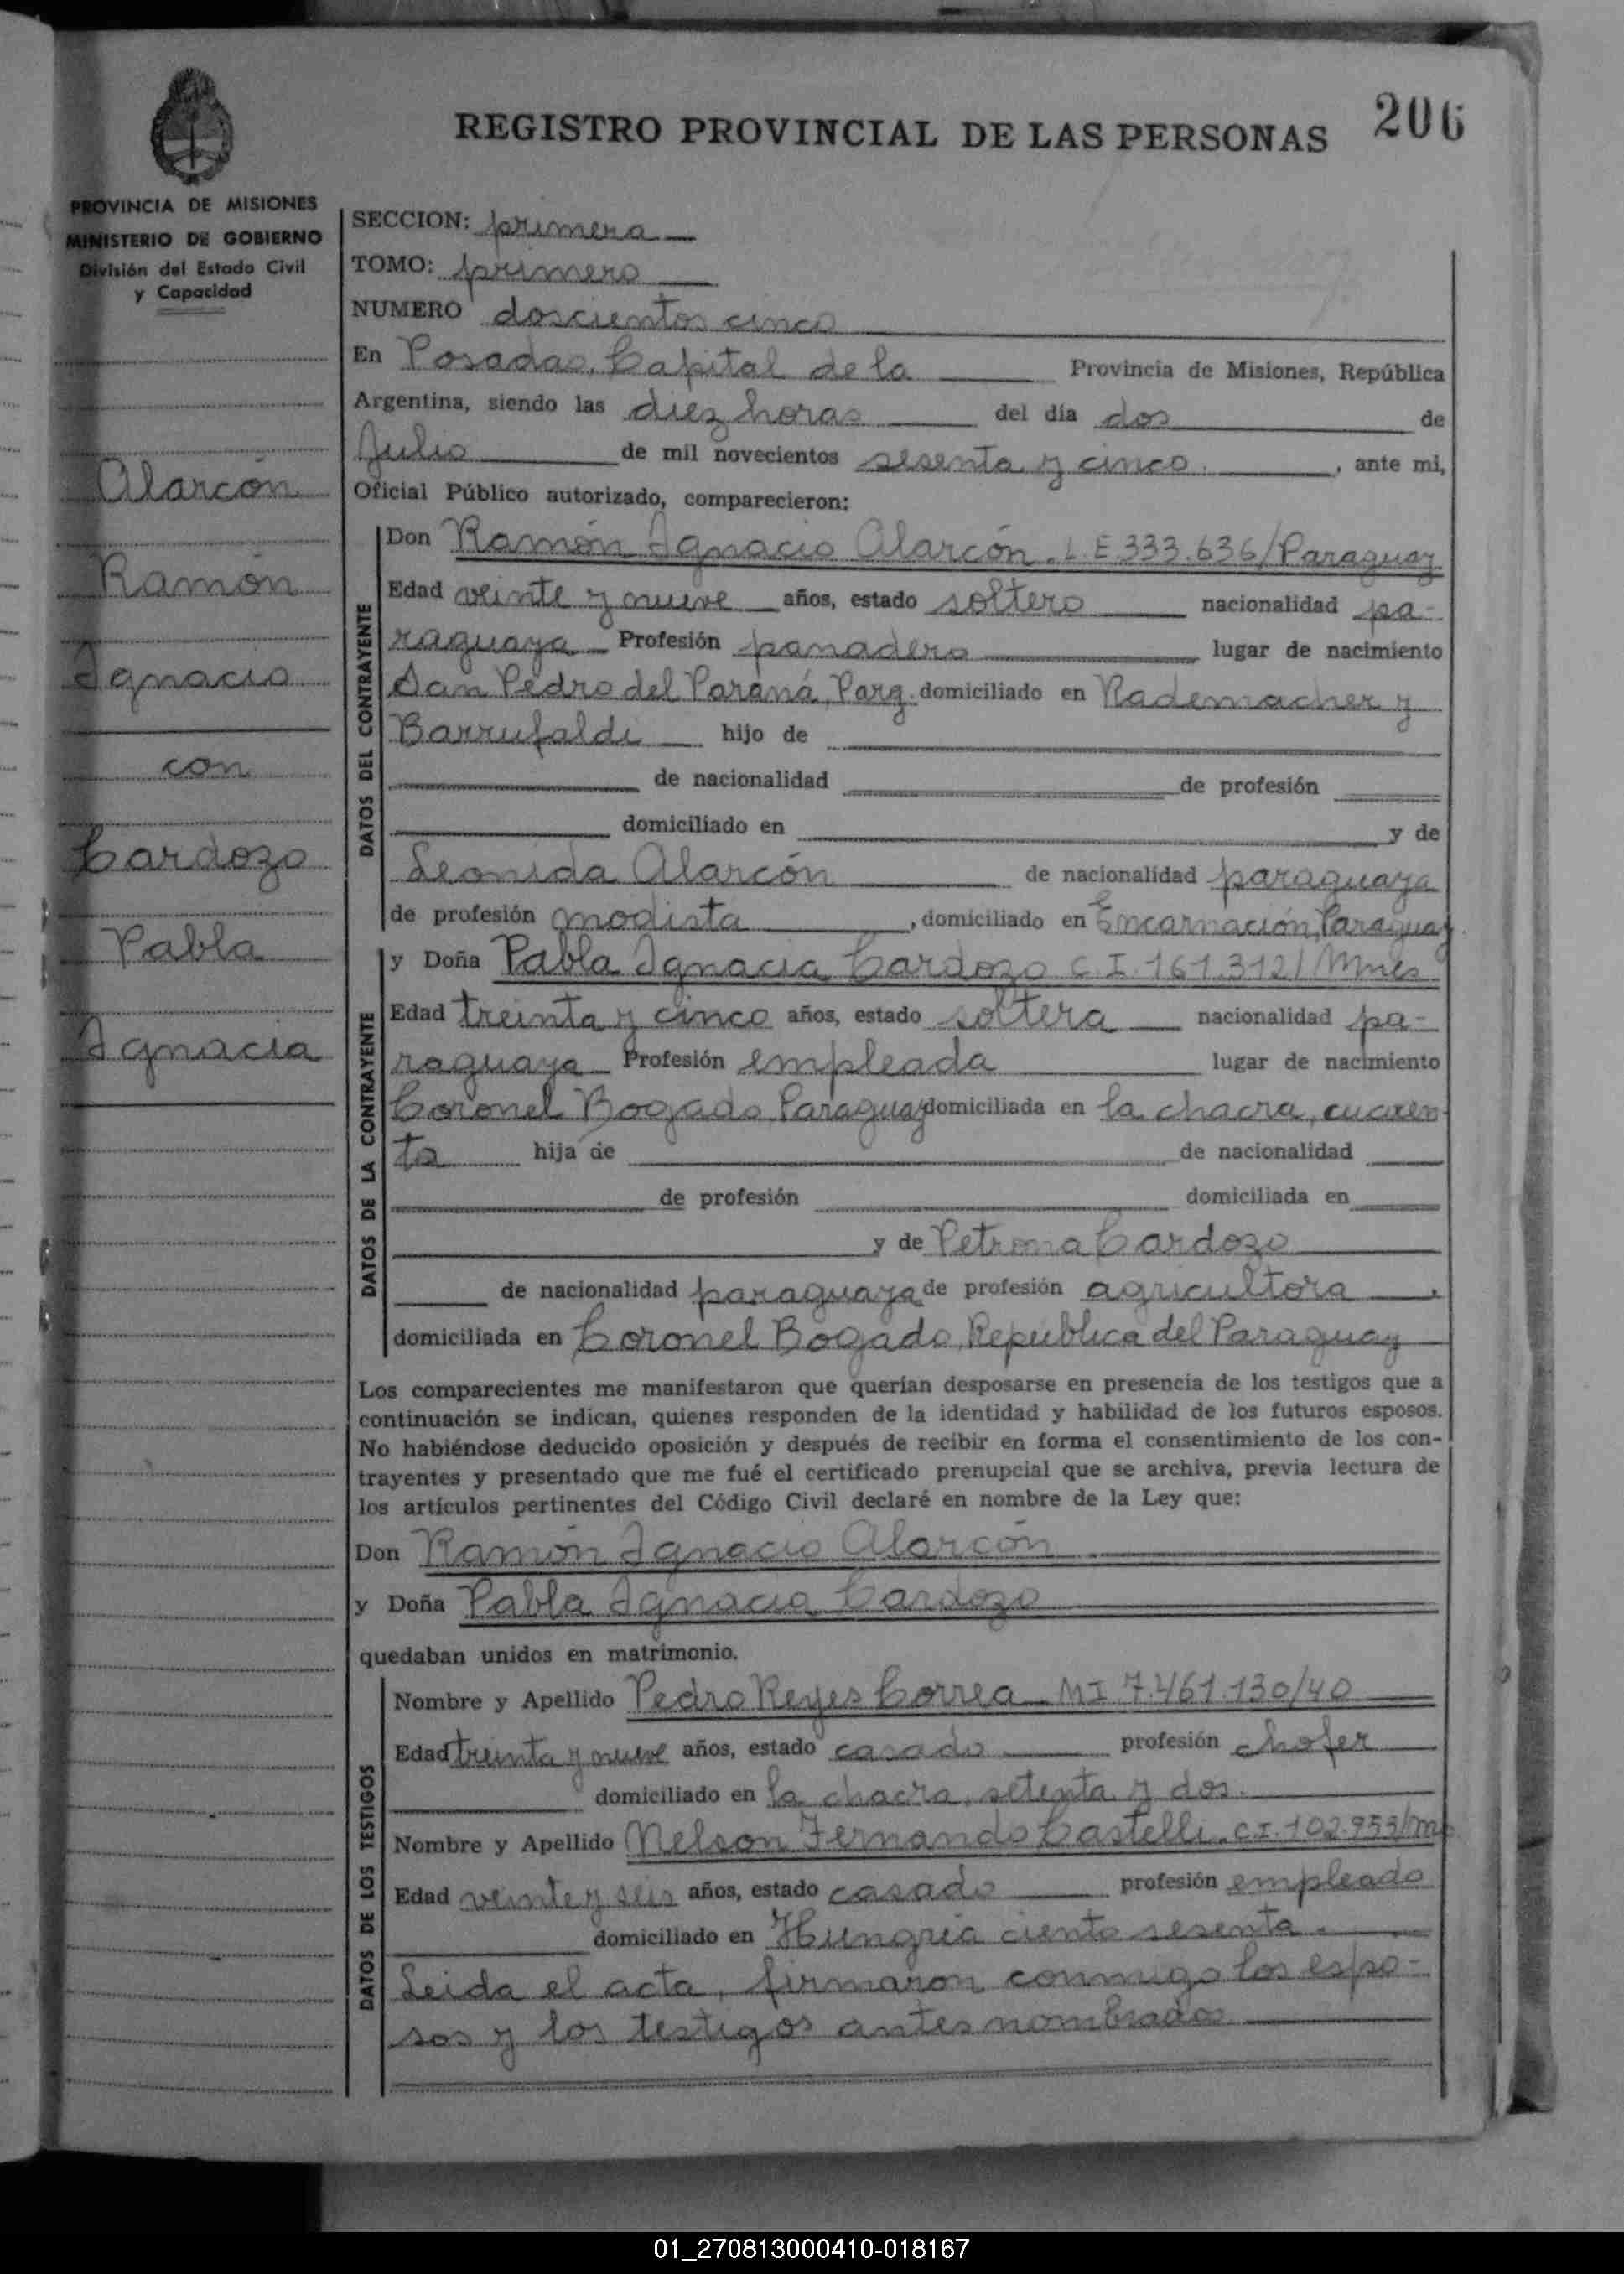 REGISTRO PROVINCIAL DE LAS PERSONAS 206
PROVINCIA DE MISIONES
MINISTERIO DE GOBIERNO
División del Estado Civil
y Capacidad
Alarcón
Ramón
Ignacio
con
Cardozo
Pabla
Ignacia
SECCION: primera
TOMO: primero
NUMERO doscientos cinco
En Posadas, Capital de la Provincia de Misiones, República
Argentina, siendo las diez horas del día dos de
Julio de mil novecientos sesenta y cinco, ante mi,
Oficial Público autorizado, comparecieron:
DATOS DEL CONTRAYENTE
Don Ramón Ignacio Alarcón. L.E. 333.636/Paraguay
Edad veinte y nueve años, estado soltero nacionalidad pa-
raguaya Profesión panadero lugar de nacimiento
San Pedro del Paraná, Parg. domiciliado en Rademacher y
Barrufaldi hijo de
de nacionalidad de profesión
domiciliado en y de
Leonida Alarcón de nacionalidad paraguaya
de profesión modista, domiciliado en Encarnación, Paraguay
DATOS DE LA CONTRAYENTE
y Doña Pabla Ignacia Cardozo C.I. 161.312/Mnes
Edad treinta y cinco años, estado soltera nacionalidad pa-
raguaya Profesión empleada lugar de nacimiento
Coronel Bogado, Paraguay domiciliada en la chacra, cuaren-
ta hija de de nacionalidad
de profesión domiciliada en
y de Petrona Cardozo
de nacionalidad paraguaya de profesión agricultora,
domiciliada en Coronel Bogado, República del Paraguay
Los comparecientes me manifestaron que querían desposarse en presencia de los testigos que a
continuación se indican, quienes responden de la identidad y habilidad de los futuros esposos.
No habiéndose deducido oposición y después de recibir en forma el consentimiento de los con-
trayentes y presentado que me fué el certificado prenupcial que se archiva, previa lectura de
los artículos pertinentes del Código Civil declaré en nombre de la Ley que:
Don Ramón Ignacio Alarcón
y Doña Pabla Ignacia Cardozo
quedaban unidos en matrimonio.
DATOS DE LOS TESTIGOS
Nombre y Apellido Pedro Reyes Correa MI 7.461.130/40
Edad treinta y nueve años, estado casado profesión chofer
domiciliado en la chacra, setenta y dos.
Nombre y Apellido Nelson Fernando Castelli. C.I. 102.953/m
Edad veinte y seis años, estado casado profesión empleado
domiciliado en Hungría ciento sesenta.
Leida el acta, firmaron conmigo los espo-
sos y los testigos antes nombrados
01_270813000410-018167